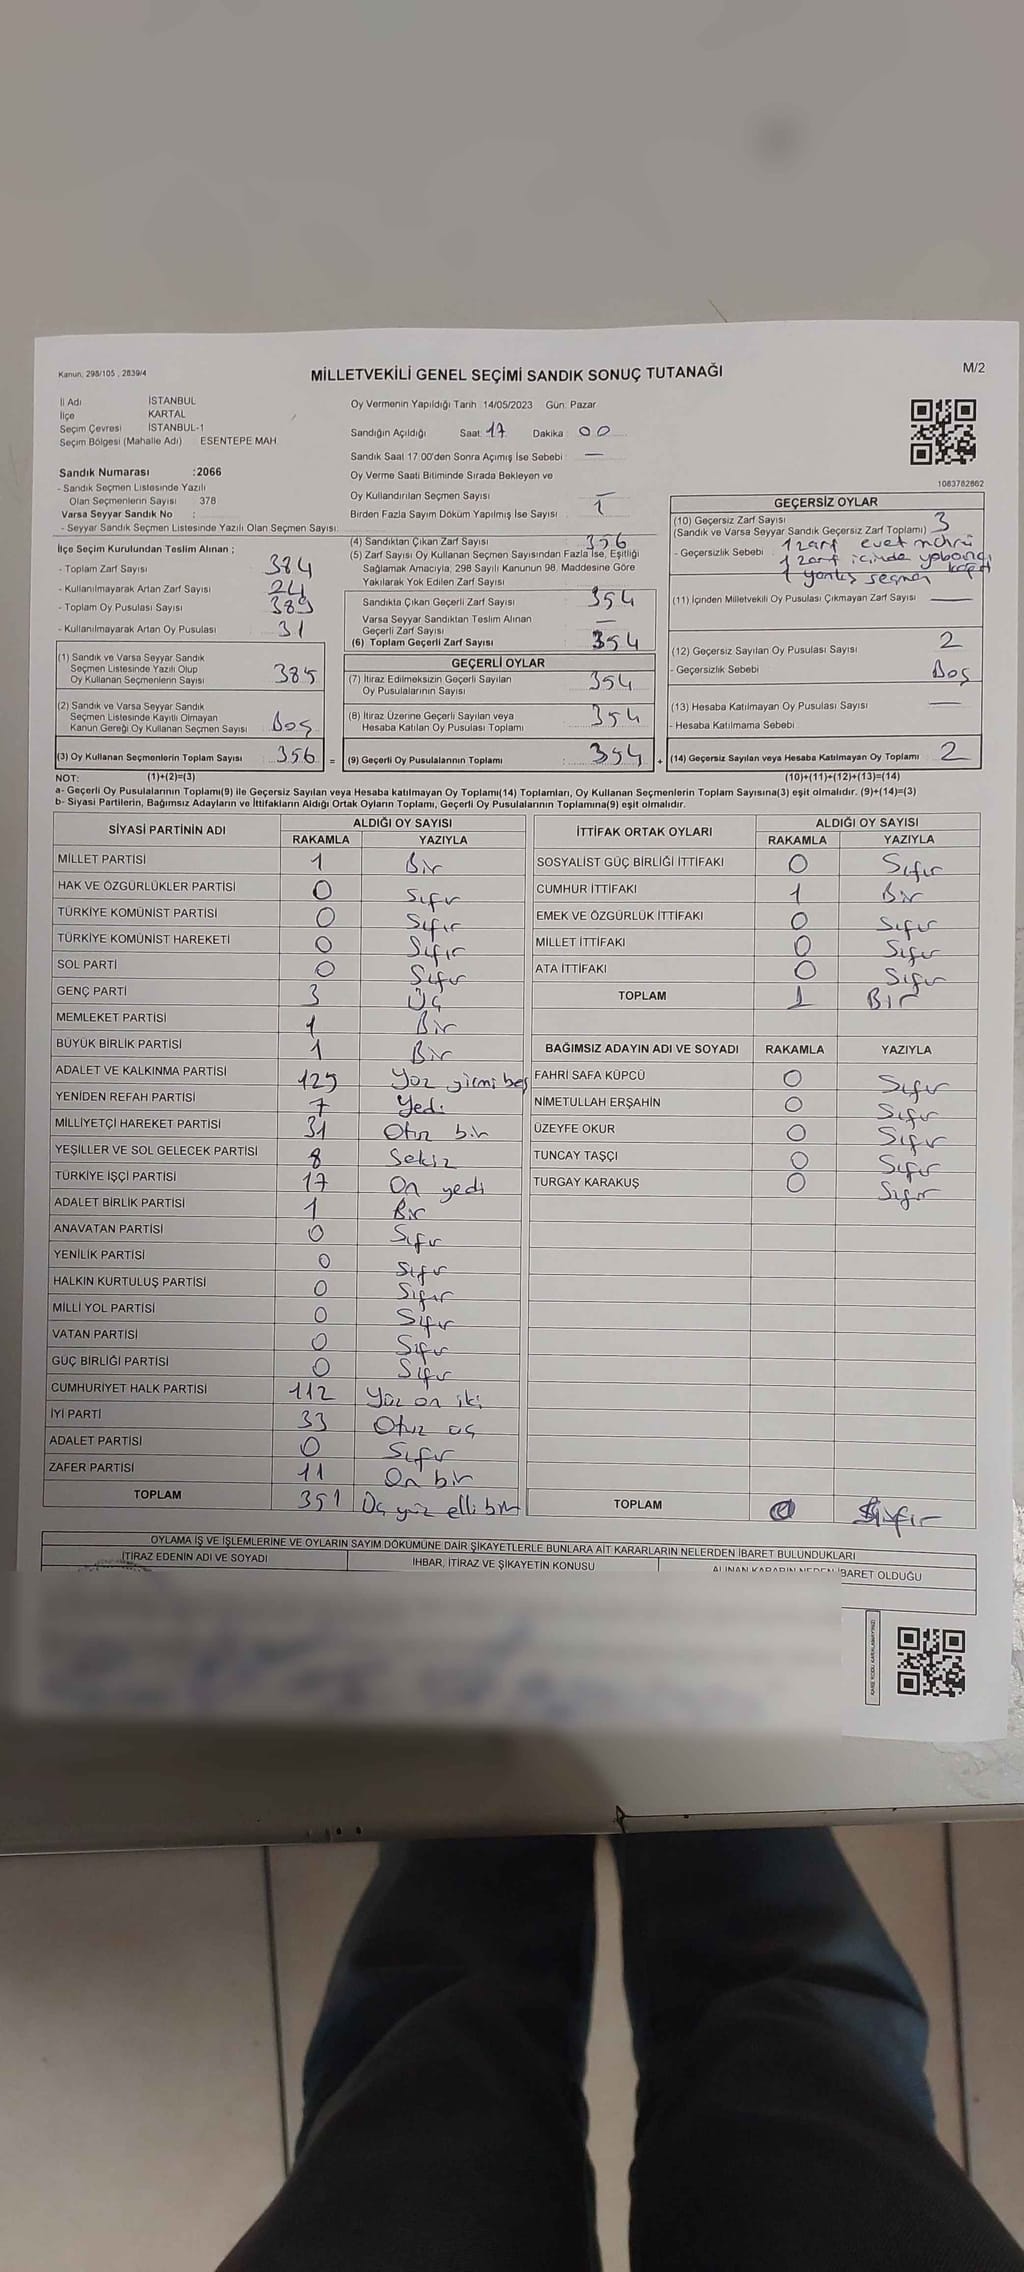 Kanun: 298/105 , 2839/4
MİLLETVEKİLİ GENEL SEÇİMİ SANDIK SONUÇ TUTANAĞI
M/2
İl Adı İSTANBUL
İlçe KARTAL
Seçim Çevresi İSTANBUL-1
Seçim Bölgesi (Mahalle Adı) ESENTEPE MAH
Sandık Numarası :2066
- Sandık Seçmen Listesinde Yazılı
Olan Seçmenlerin Sayısı 378
Varsa Seyyar Sandık No :
- Seyyar Sandık Seçmen Listesinde Yazılı Olan Seçmen Sayısı:
Oy Vermenin Yapıldığı Tarih 14/05/2023 Gün: Pazar
Sandığın Açıldığı Saat: 17 Dakika : 00
Sandık Saat 17:00'den Sonra Açımış İse Sebebi : —
Oy Verme Saati Bitiminde Sırada Bekleyen ve
Oy Kullandırılan Seçmen Sayısı : —
Birden Fazla Sayım Döküm Yapılmış İse Sayısı : 1
1083782862
İlçe Seçim Kurulundan Teslim Alınan ;
- Toplam Zarf Sayısı : 384
- Kullanılmayarak Artan Zarf Sayısı : 24
- Toplam Oy Pusulası Sayısı : 389
- Kullanılmayarak Artan Oy Pusulası : 31
(1) Sandık ve Varsa Seyyar Sandık
Seçmen Listesinde Yazılı Olup
Oy Kullanan Seçmenlerin Sayısı : 385
(2) Sandık ve Varsa Seyyar Sandık
Seçmen Listesinde Kayıtlı Olmayan
Kanun Gereği Oy Kullanan Seçmen Sayısı : Boş
(3) Oy Kullanan Seçmenlerin Toplam Sayısı : 356 =
(4) Sandıktan Çıkan Zarf Sayısı : 356
(5) Zarf Sayısı Oy Kullanan Seçmen Sayısından Fazla İse, Eşitliği
Sağlamak Amacıyla, 298 Sayılı Kanunun 98. Maddesine Göre
Yakılarak Yok Edilen Zarf Sayısı :
Sandıkta Çıkan Geçerli Zarf Sayısı : 354
Varsa Seyyar Sandıktan Teslim Alınan
Geçerli Zarf Sayısı : —
(6) Toplam Geçerli Zarf Sayısı : 354
GEÇERLİ OYLAR
(7) İtiraz Edilmeksizin Geçerli Sayılan
Oy Pusulalarının Sayısı : 354
(8) İtiraz Üzerine Geçerli Sayılan veya
Hesaba Katılan Oy Pusulası Toplamı : 354
(9) Geçerli Oy Pusulalarının Toplamı : 354 +
GEÇERSİZ OYLAR
(10) Geçersiz Zarf Sayısı : 3
(Sandık ve Varsa Seyyar Sandık Geçersiz Zarf Toplamı)
- Geçersizlik Sebebi : 1 zarf evet mührü
1 zarf içinde yabancı kağıt
1 yanlış seçmen
(11) İçinden Milletvekili Oy Pusulası Çıkmayan Zarf Sayısı : —
(12) Geçersiz Sayılan Oy Pusulası Sayısı : 2
- Geçersizlik Sebebi : Boş
(13) Hesaba Katılmayan Oy Pusulası Sayısı : —
- Hesaba Katılmama Sebebi :
(14) Geçersiz Sayılan veya Hesaba Katılmayan Oy Toplamı : 2
NOT: (1)+(2)=(3) (10)+(11)+(12)+(13)=(14)
a- Geçerli Oy Pusulalarının Toplamı(9) ile Geçersiz Sayılan veya Hesaba katılmayan Oy Toplamı(14) Toplamları, Oy Kullanan Seçmenlerin Toplam Sayısına(3) eşit olmalıdır. (9)+(14)=(3)
b- Siyasi Partilerin, Bağımsız Adayların ve İttifakların Aldığı Ortak Oyların Toplamı, Geçerli Oy Pusulalarının Toplamına(9) eşit olmalıdır.
SİYASİ PARTİNİN ADI ALDIĞI OY SAYISI
RAKAMLA YAZIYLA
MİLLET PARTİSİ 1 Bir
HAK VE ÖZGÜRLÜKLER PARTİSİ 0 Sıfır
TÜRKİYE KOMÜNİST PARTİSİ 0 Sıfır
TÜRKİYE KOMÜNİST HAREKETİ 0 Sıfır
SOL PARTİ 0 Sıfır
GENÇ PARTİ 3 Üç
MEMLEKET PARTİSİ 1 Bir
BÜYÜK BİRLİK PARTİSİ 1 Bir
ADALET VE KALKINMA PARTİSİ 125 Yüz yirmi beş
YENİDEN REFAH PARTİSİ 7 Yedi
MİLLİYETÇİ HAREKET PARTİSİ 31 Otuz bir
YEŞİLLER VE SOL GELECEK PARTİSİ 8 Sekiz
TÜRKİYE İŞÇİ PARTİSİ 17 On yedi
ADALET BİRLİK PARTİSİ 1 Bir
ANAVATAN PARTİSİ 0 Sıfır
YENİLİK PARTİSİ 0 Sıfır
HALKIN KURTULUŞ PARTİSİ 0 Sıfır
MİLLİ YOL PARTİSİ 0 Sıfır
VATAN PARTİSİ 0 Sıfır
GÜÇ BİRLİĞİ PARTİSİ 0 Sıfır
CUMHURİYET HALK PARTİSİ 112 Yüz on iki
İYİ PARTİ 33 Otuz üç
ADALET PARTİSİ 0 Sıfır
ZAFER PARTİSİ 11 On bir
TOPLAM 351 Üç yüz elli bir
İTTİFAK ORTAK OYLARI ALDIĞI OY SAYISI
RAKAMLA YAZIYLA
SOSYALİST GÜÇ BİRLİĞİ İTTİFAKI 0 Sıfır
CUMHUR İTTİFAKI 1 Bir
EMEK VE ÖZGÜRLÜK İTTİFAKI 0 Sıfır
MİLLET İTTİFAKI 0 Sıfır
ATA İTTİFAKI 0 Sıfır
TOPLAM 1 Bir
BAĞIMSIZ ADAYIN ADI VE SOYADI RAKAMLA YAZIYLA
FAHRİ SAFA KÜPCÜ 0 Sıfır
NİMETULLAH ERŞAHİN 0 Sıfır
ÜZEYFE OKUR 0 Sıfır
TUNCAY TAŞÇI 0 Sıfır
TURGAY KARAKUŞ 0 Sıfır
TOPLAM 0 Sıfır
OYLAMA İŞ VE İŞLEMLERİNE VE OYLARIN SAYIM DÖKÜMÜNE DAİR ŞİKAYETLERLE BUNLARA AİT KARARLARIN NELERDEN İBARET BULUNDUKLARI
İTİRAZ EDENİN ADI VE SOYADI İHBAR, İTİRAZ VE ŞİKAYETİN KONUSU ALINAN KARARIN NEDEN İBARET OLDUĞU
KARE KODU KARALAMAYINIZ!